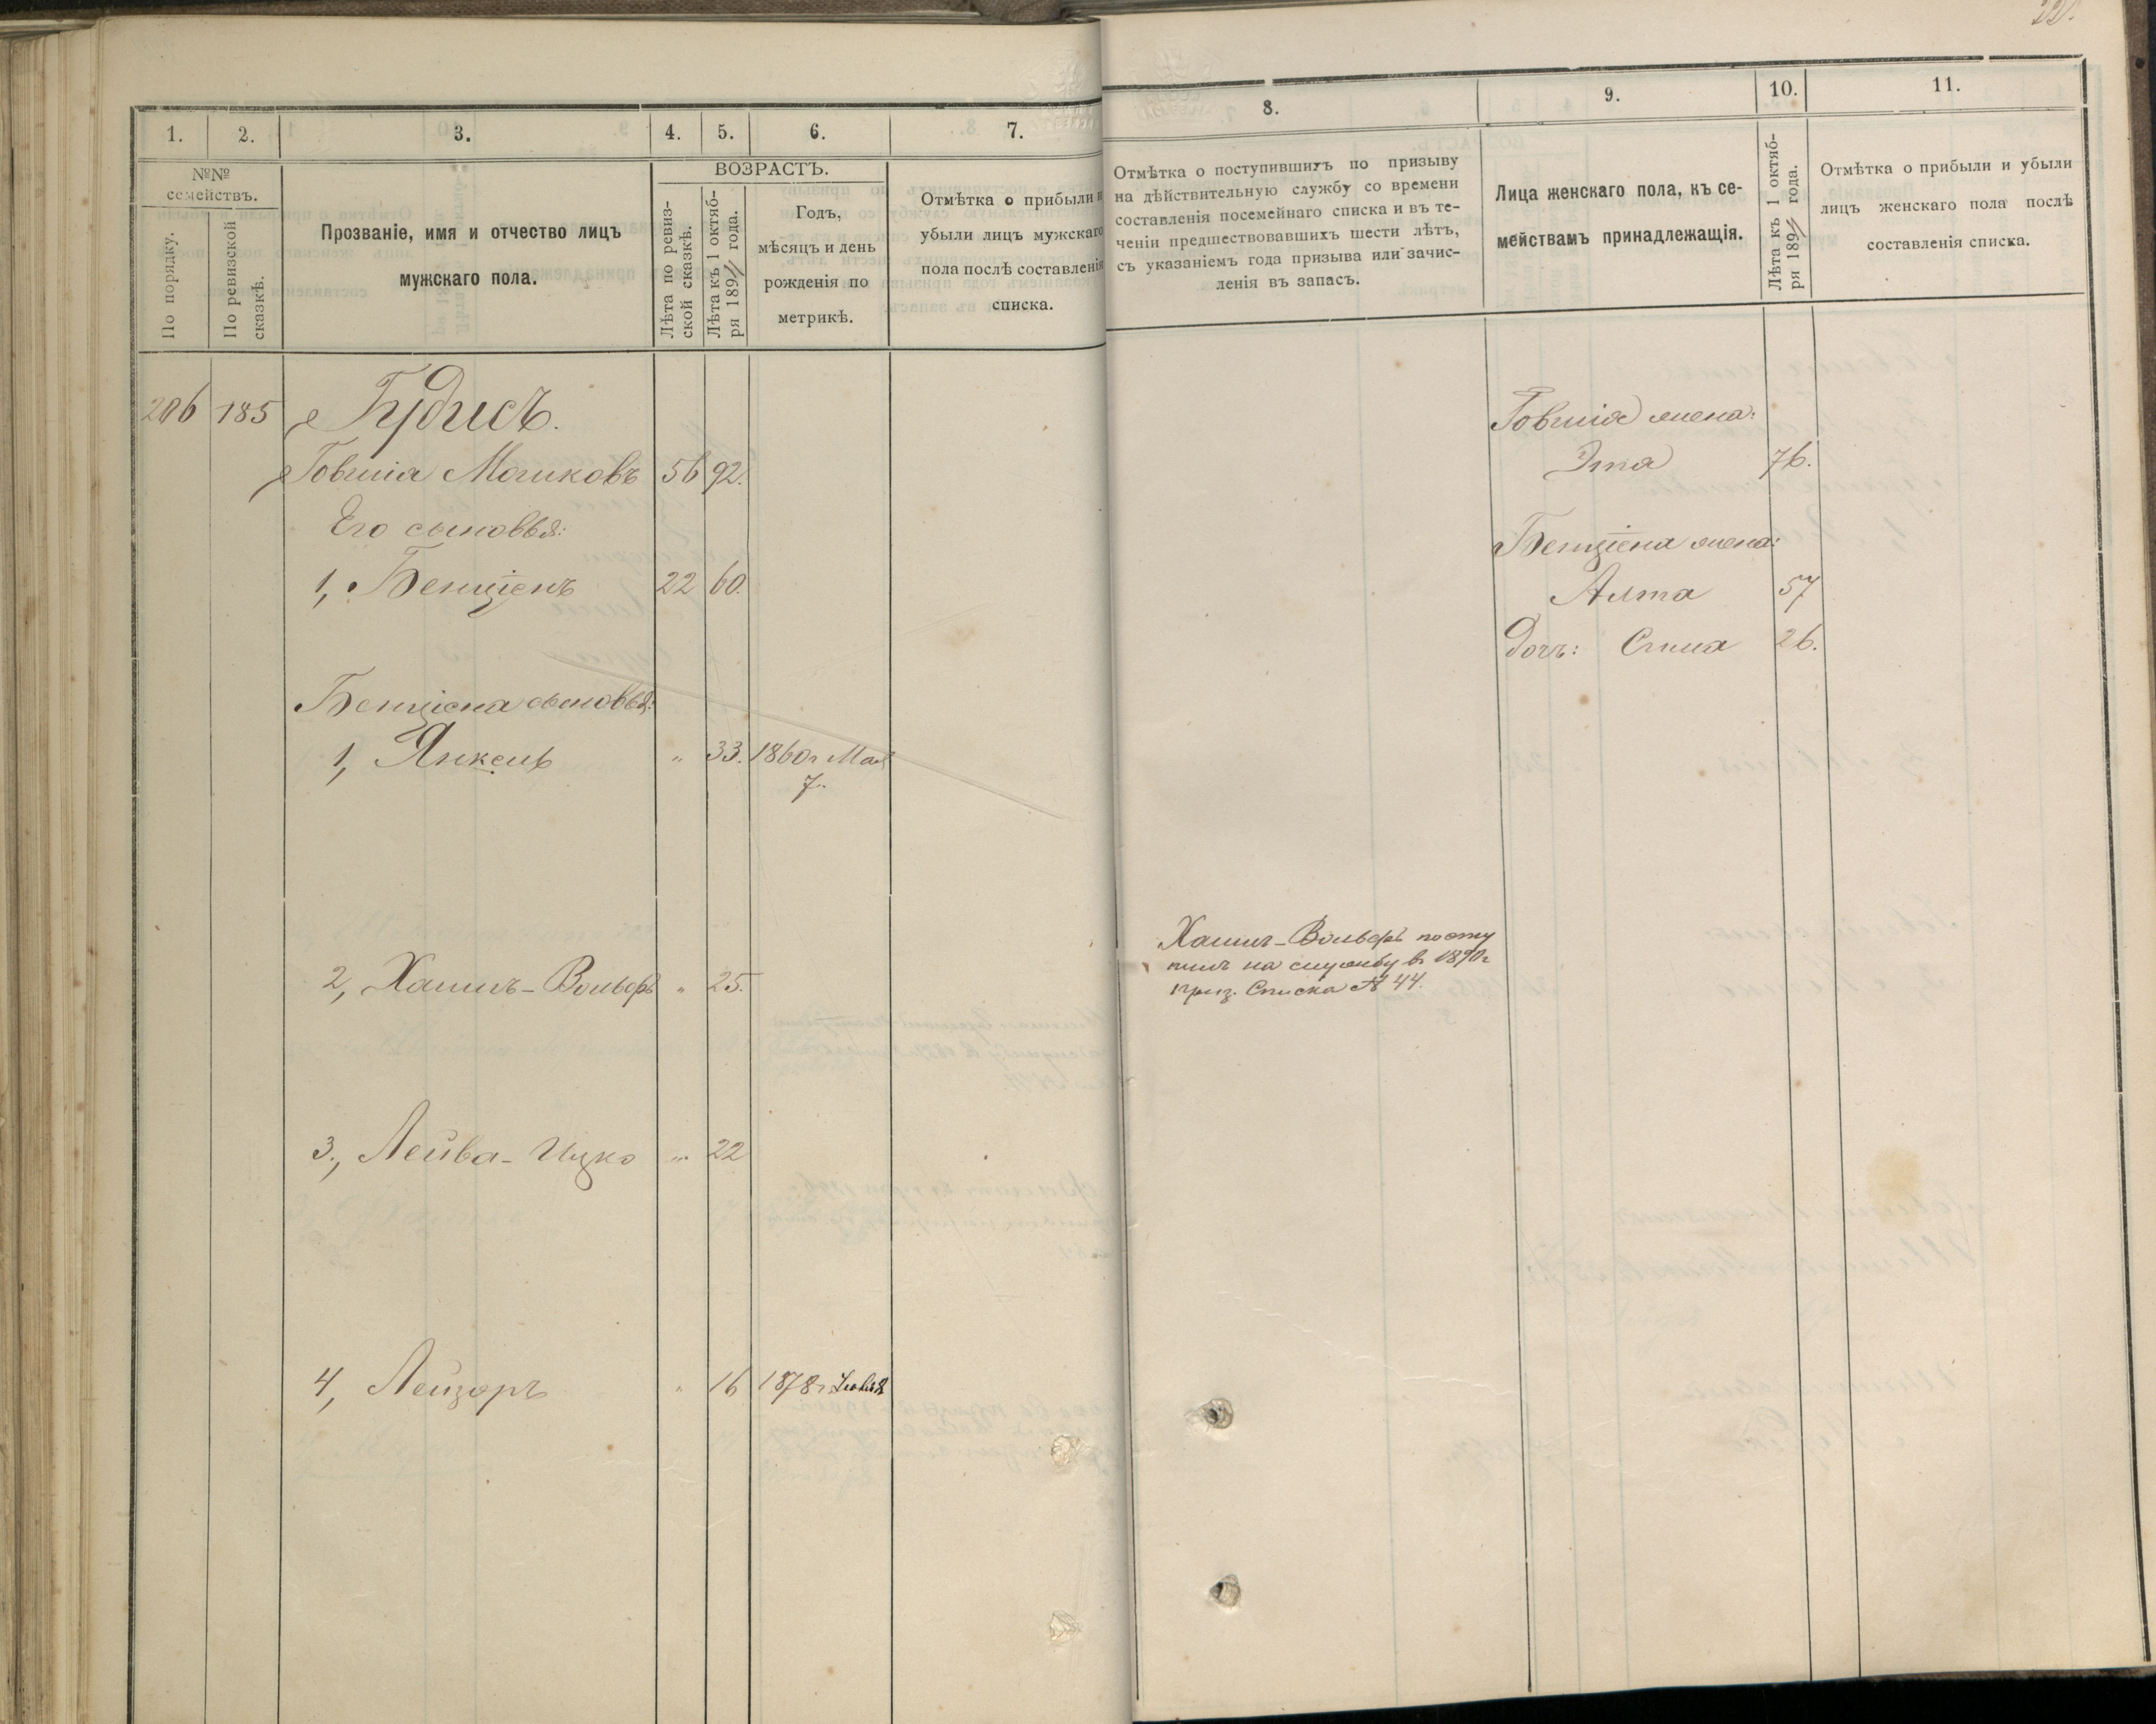 22
1.
2.
3.
4.
5.
6.
7.
8.
9.
10.
11.
№№
семействъ.
По порядку.
По ревизской
сказкѣ.
Прозваніе, имя и отчество лицъ
мужскаго пола.
ВОЗРАСТЪ.
Лѣта по ревиз-
ской сказкѣ.
Лѣта къ 1 октяб-
ря 189 года.
Годъ,
мѣсяцъ и день
рожденія по
метрикѣ.
Отмѣтка о прибыли и
убыли лицъ мужскаго
пола послѣ составленія
списка.
Отмѣтка о поступившихъ по призыву
на дѣйствительную службу со времени
составленія посемейнаго списка и въ те-
ченіи предшествовавшихъ шести лѣтъ,
съ указаніемъ года призыва или зачис-
ленія въ запасъ.
Лица женскаго пола, къ се-
мействамъ принадлежащія.
Лѣта къ 1 октяб-
ря 189 года.
Отмѣтка о прибыли и убыли
лицъ женскаго пола послѣ
составленія списка.
206 185 Гудисъ.
Говшіа Мошковъ 56 92.
Его сыновья:
1, Бенціенъ 22 60.
Бенціена сыновья:
1, Янкель " 33. 1860 г Мая
7.
2, Хаимъ-Вольфъ " 25.
3, Лейба-Ицко " 22
4, Лейзоръ " 16 1878 г.
Хаимъ-Вольфъ посту
пилъ на службу в 1890 г
приз. Списка № 44.
Говшіа жена:
Эта 76.
Бенціена жена:
Алта 57
Дочь: 26.